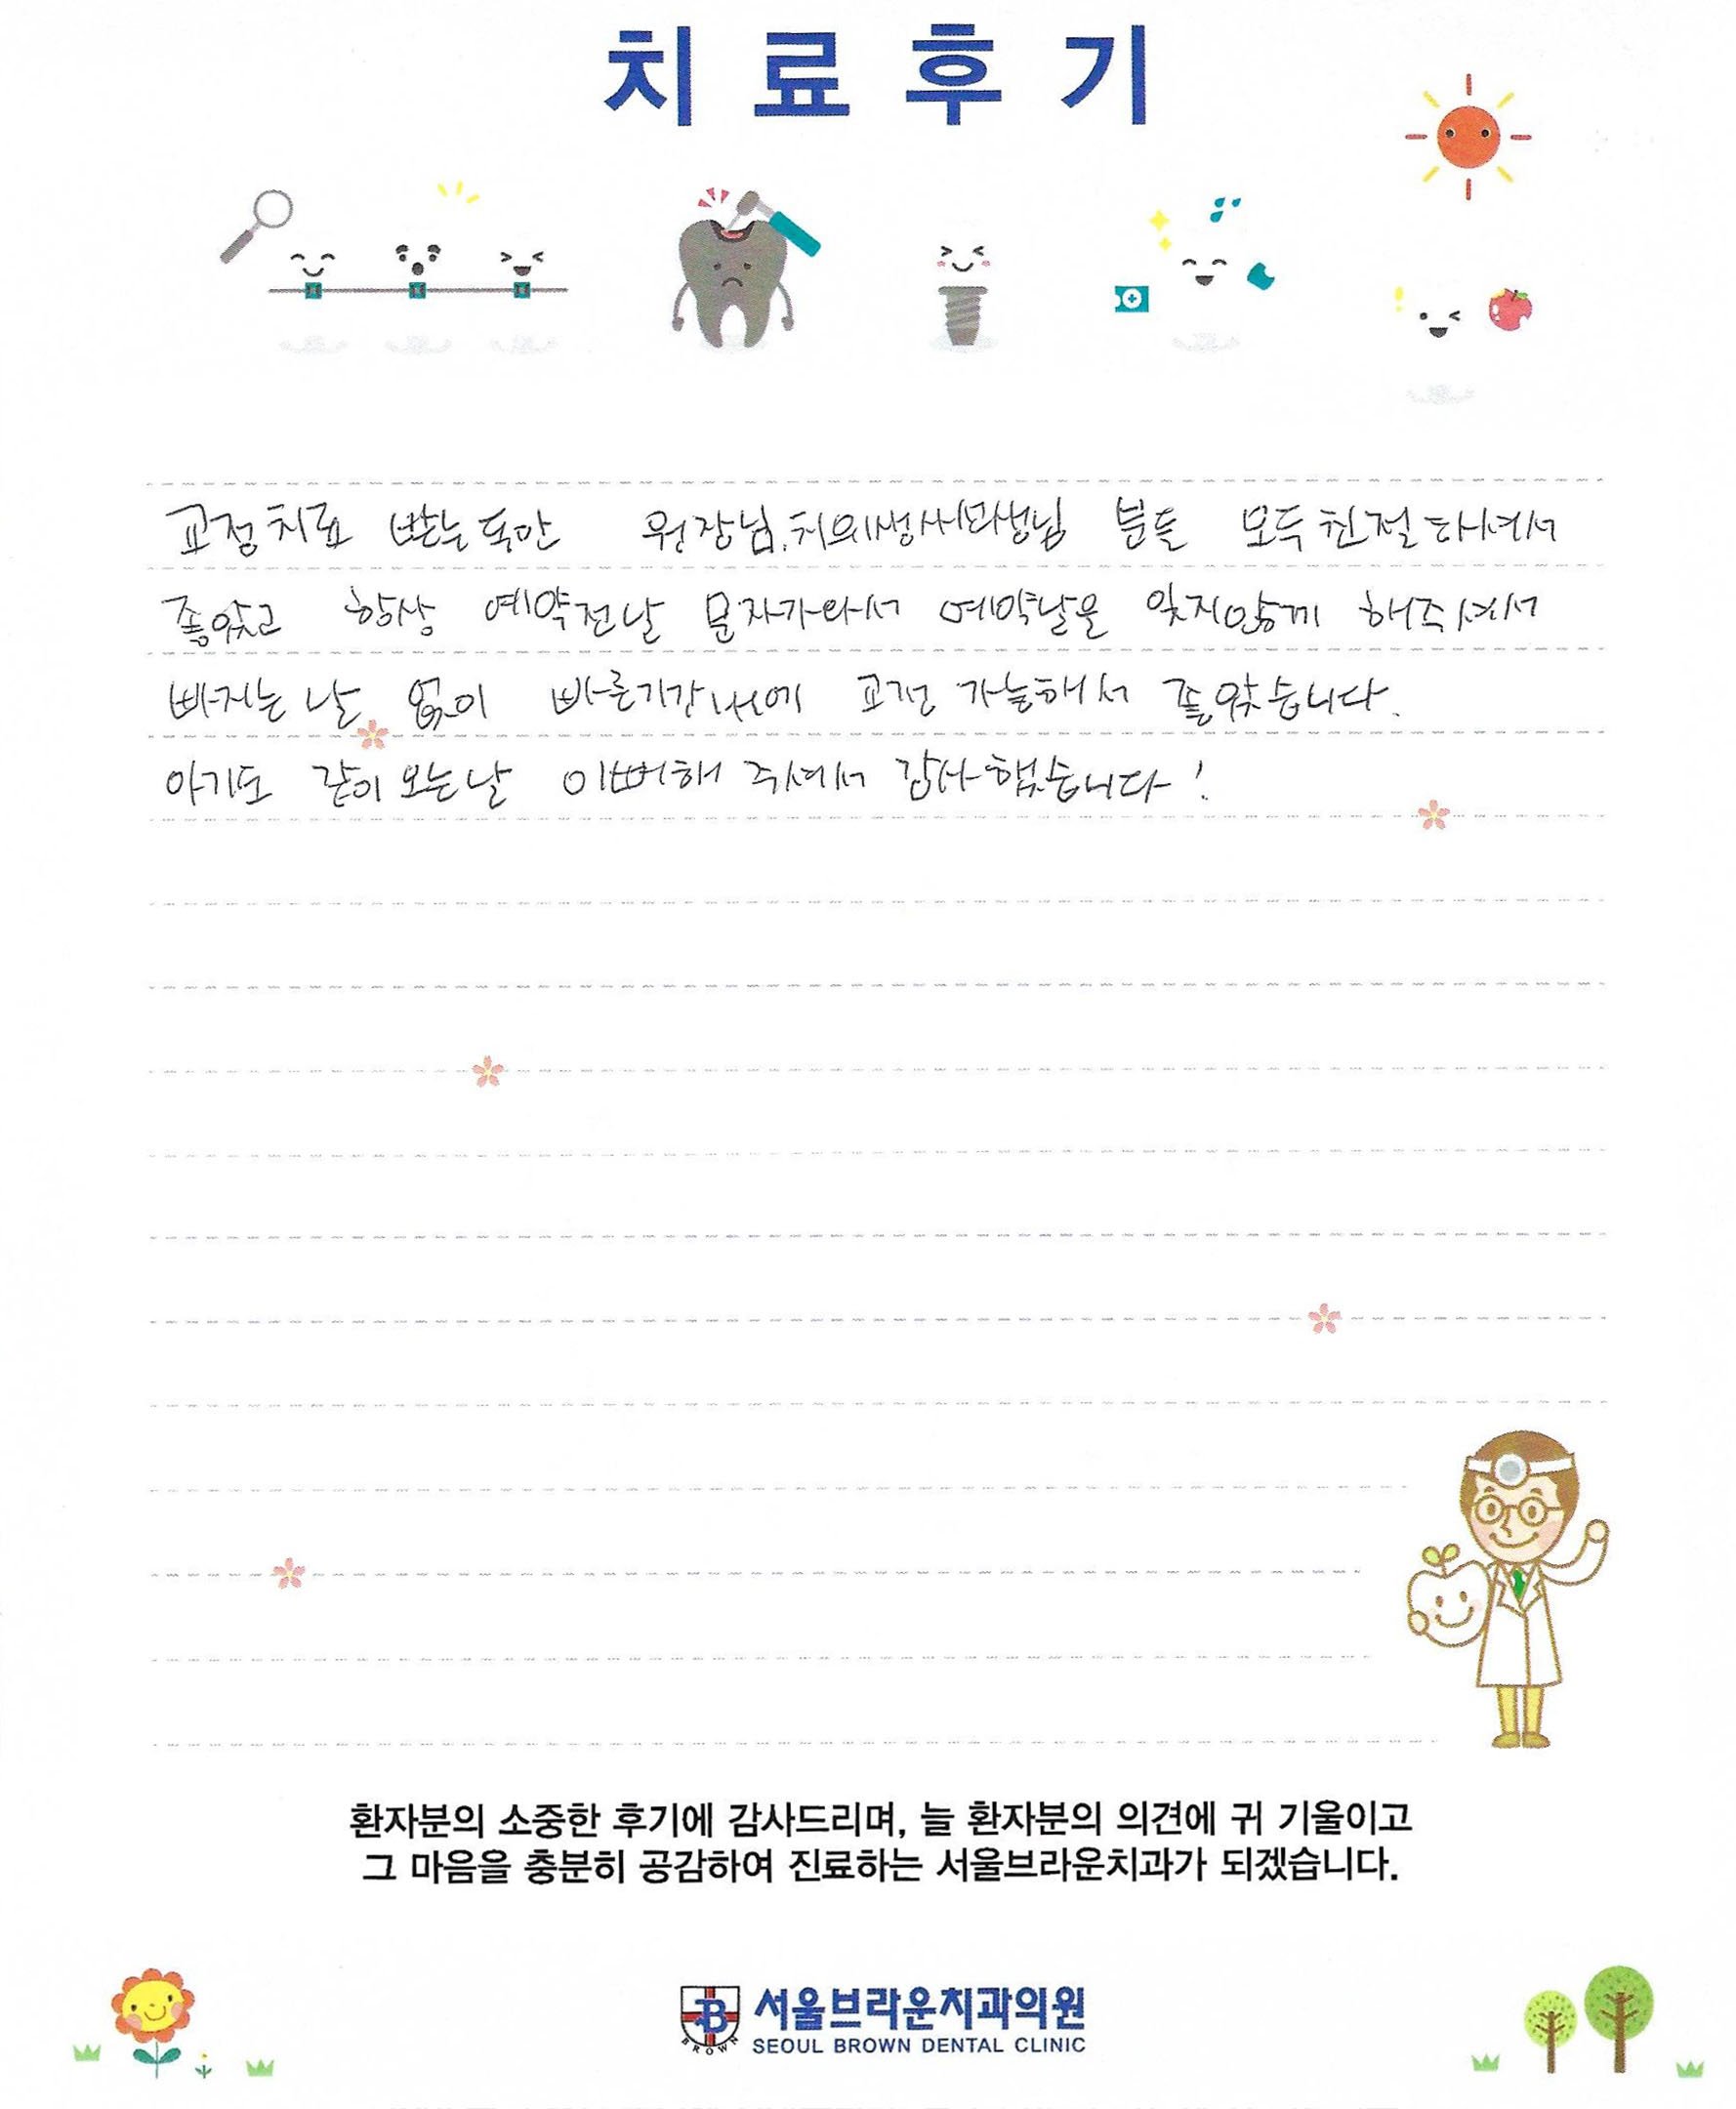 치료후기
교정치료 받는동안 원장님, 치의생사선생님 분들 모두 친절하셔서
좋았고 항상 예약전날 문자가와서 예약날을 잊지않게 해주셔서
빠지는 날 없이 빠른기간내에 교정 가능해서 좋았습니다.
아기도 같이 오는날 이뻐해 주셔서 감사했습니다!
환자분의 소중한 후기에 감사드리며, 늘 환자분의 의견에 귀 기울이고
그 마음을 충분히 공감하여 진료하는 서울브라운치과가 되겠습니다.
B BROWN
서울브라운치과의원
SEOUL BROWN DENTAL CLINIC